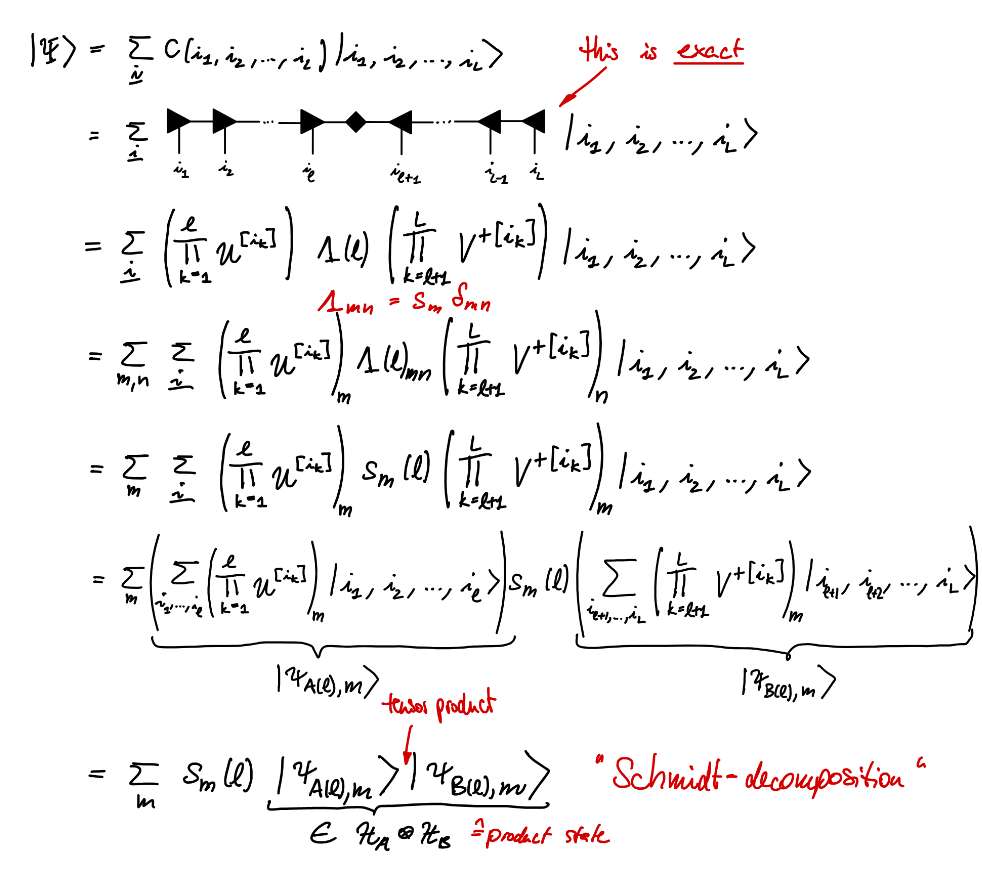 |Ψ⟩ = ∑_i C(i₁, i₂, ..., i_L) |i₁, i₂, ..., i_L⟩
this is exact
= ∑_i i₁ i₂ ... i_ℓ i_{ℓ+1} ... i_{L-1} i_L |i₁, i₂, ..., i_L⟩
= ∑_i (∏_{k=1}^{ℓ} U^{[i_k]}) Λ(ℓ) (∏_{k=ℓ+1}^{L} V^{+[i_k]}) |i₁, i₂, ..., i_L⟩
Λ_{mn} = S_m δ_{mn}
= ∑_{m,n} ∑_i (∏_{k=1}^{ℓ} U^{[i_k]})_m Λ(ℓ)_{mn} (∏_{k=ℓ+1}^{L} V^{+[i_k]})_n |i₁, i₂, ..., i_L⟩
= ∑_m ∑_i (∏_{k=1}^{ℓ} U^{[i_k]})_m S_m(ℓ) (∏_{k=ℓ+1}^{L} V^{+[i_k]})_m |i₁, i₂, ..., i_L⟩
= ∑_m (∑_{i₁,...,i_ℓ} (∏_{k=1}^{ℓ} U^{[i_k]})_m |i₁, i₂, ..., i_ℓ⟩) S_m(ℓ) (∑_{i_{ℓ+1},...,i_L} (∏_{k=ℓ+1}^{L} V^{+[i_k]})_m |i_{ℓ+1}, i_{ℓ+2}, ..., i_L⟩)
|Ψ_{A(ℓ),m}⟩ |Ψ_{B(ℓ),m}⟩
tensor product
= ∑_m S_m(ℓ) |Ψ_{A(ℓ),m}⟩ |Ψ_{B(ℓ),m}⟩ "Schmidt-decomposition"
∈ ℋ_A ⊗ ℋ_B ≙ product state